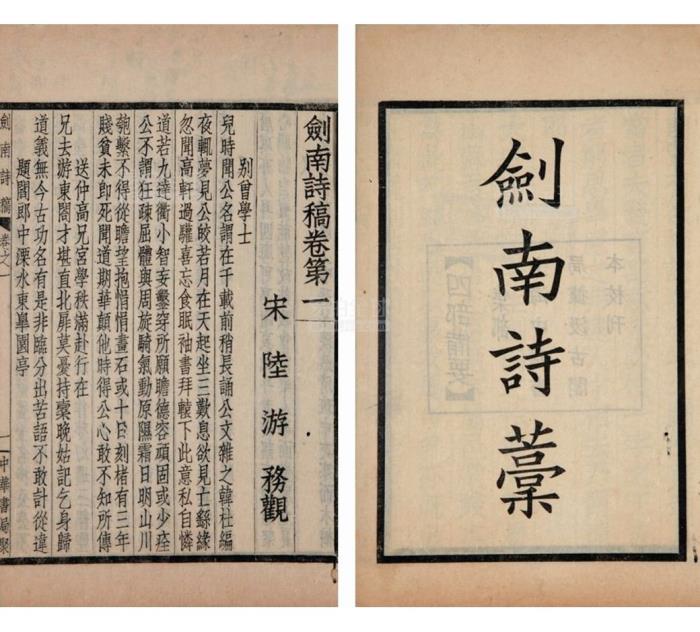 劍南詩藁
劍南詩稿卷第一
宋 陸 游 務觀
別曾學士
兒時聞公名謂在千載前稍長誦公文雜之韓杜編
夜輒夢見公皎若月在天起坐三歎息欲見亡繇緣
忽聞高軒過驩喜忘食眠袖書拜轅下此意私自憐
道若九達衢小智妄鑿穿所願瞻德容頑固或少痊
公不謂狂疎屈體與周旋騎氣動原隰霜日明山川
匏繫不得從瞻望抱悁悁畫石或十日刻楮有三年
賤貧未即死聞道期華顛他時得公心敢不知所傳
送仲高兄宮學秩滿赴行在
兄去游東閤才堪直北扉莫憂持橐晚姑記乞身歸
道義無今古功名有是非臨分出苦語不敢計從違
題閻郎中溧水東皐園亭
劍南詩稿 卷之一 一 中華書局聚